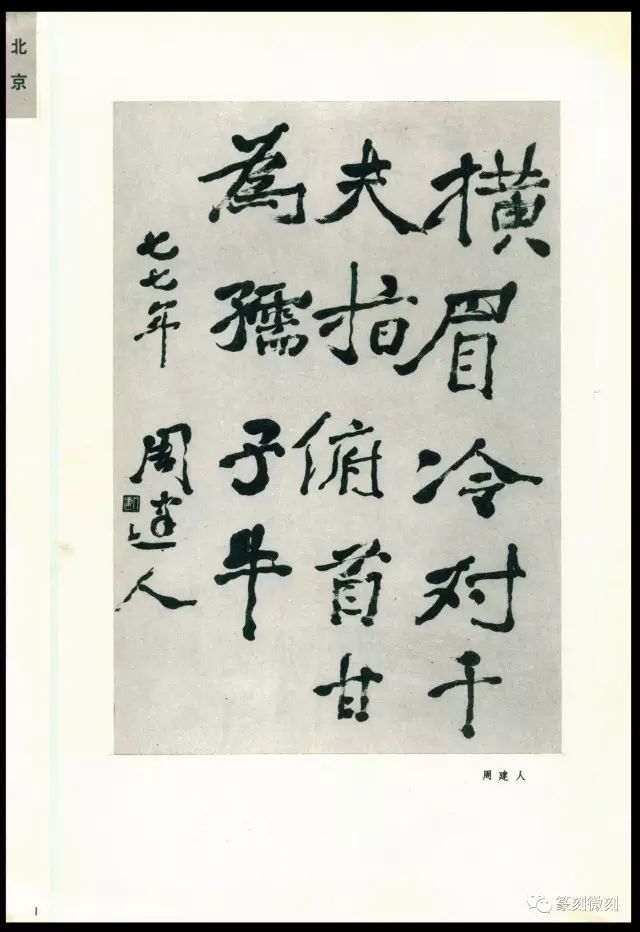 北京
横眉冷对千
夫指俯首甘
為孺子牛
七七年 周建人
周建人
1
篆刻微刻